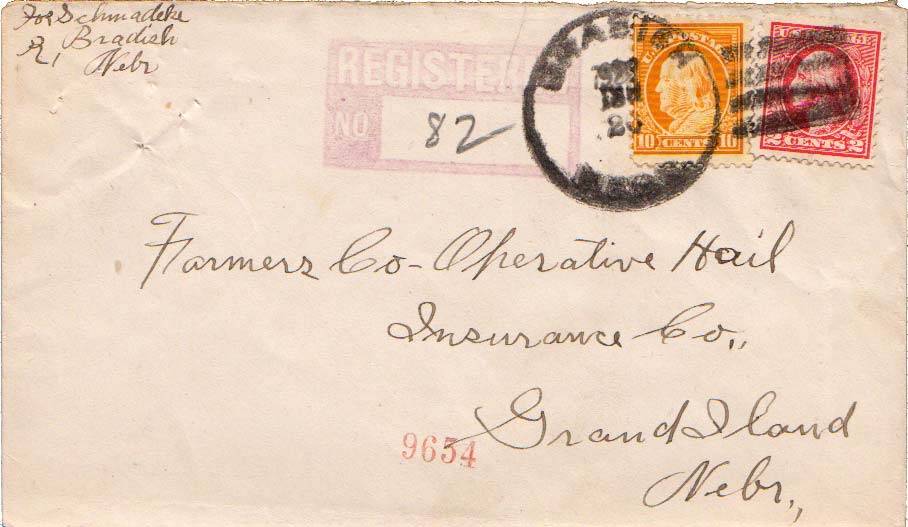 Joe Schmadeke
R1 Bradish
Nebr
REGISTERED
NO. 82
BRADISH
20
U.S. POSTAGE
10 CENTS 10
U.S. POSTAGE
2 CENTS 2
Farmers Co-Operative Hail
Insurance Co.,
Grand Iland
9654
Nebr.,